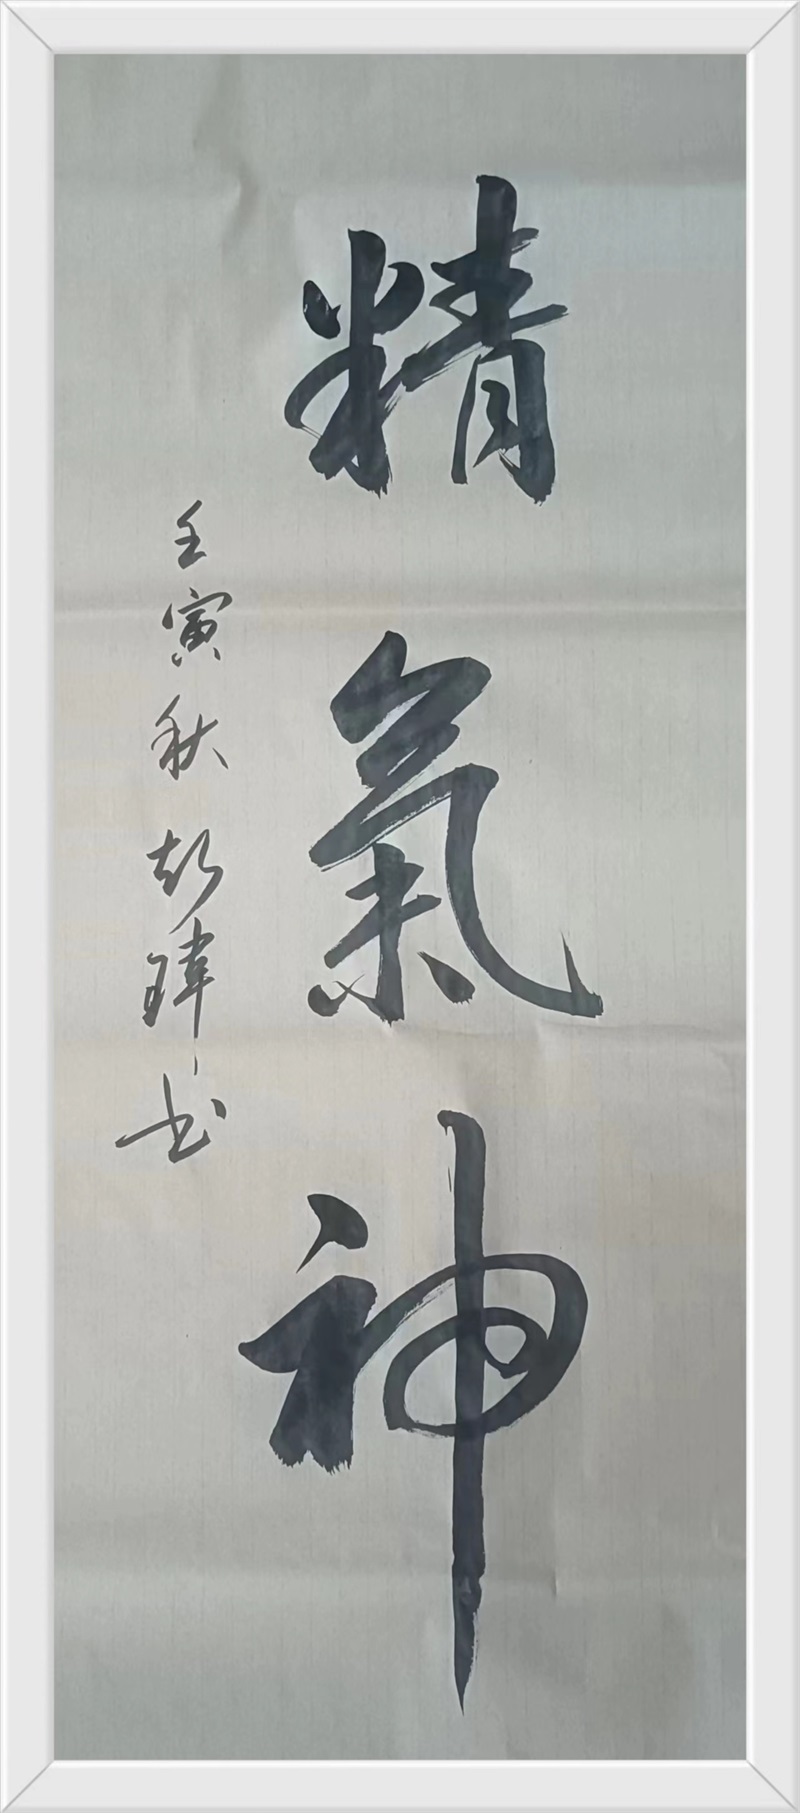 精氣神
壬寅秋彭瑋书